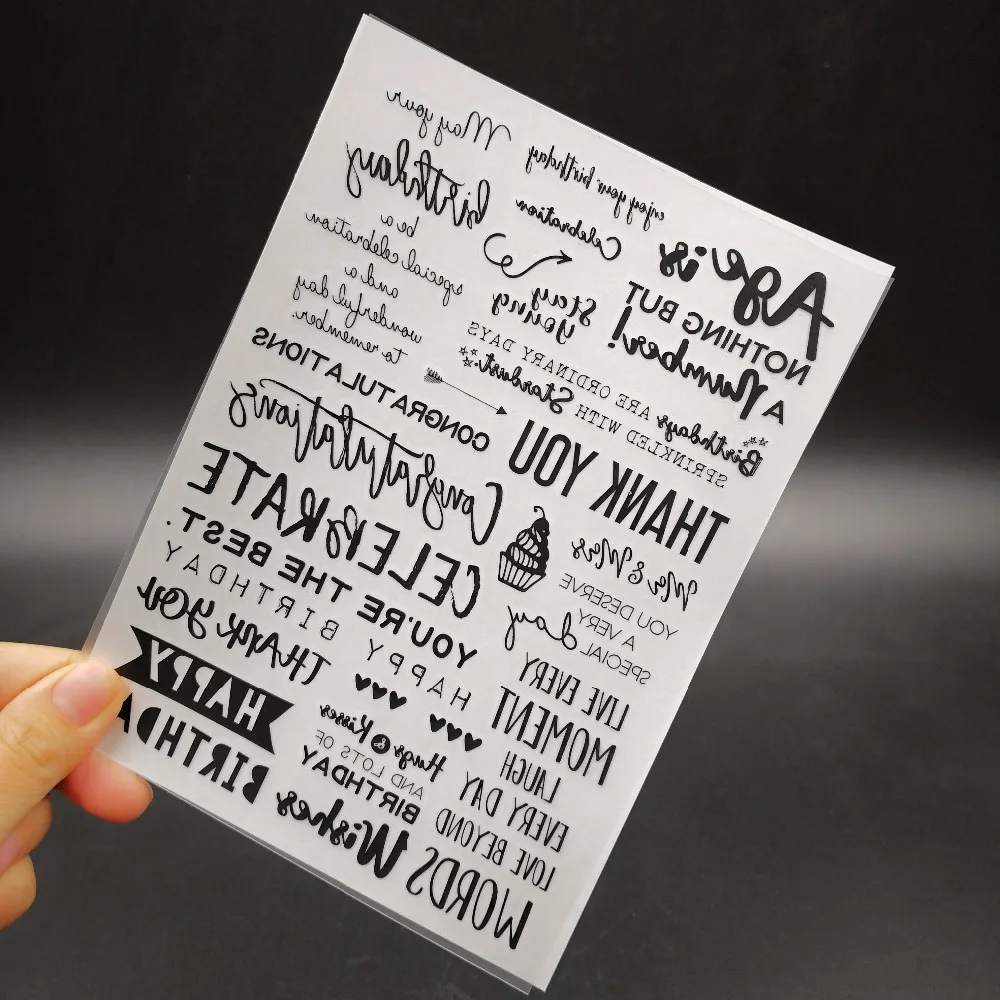 May your
birthday
be a
special celebration
and a
wonderful day
to remember.
enjoy your birthday
Celebration
Stay
young
Age is
NOTHING BUT
A Number!
Birthdays ARE ORDINARY DAYS
SPRINKLED WITH Stardust.
CONGRATULATIONS
Congratulations
THANK YOU
CELEBRATE
YOU'RE THE BEST.
HAPPY BIRTHDAY
THANK YOU
Mr & Mrs
YOU DESERVE
A VERY
SPECIAL day
HAPPY
BIRTHDA
Hugs & Kisses
AND LOTS OF
BIRTHDAY
Wishes
LIVE EVERY
MOMENT
LAUGH
EVERY DAY
LOVE BEYOND
WORDS